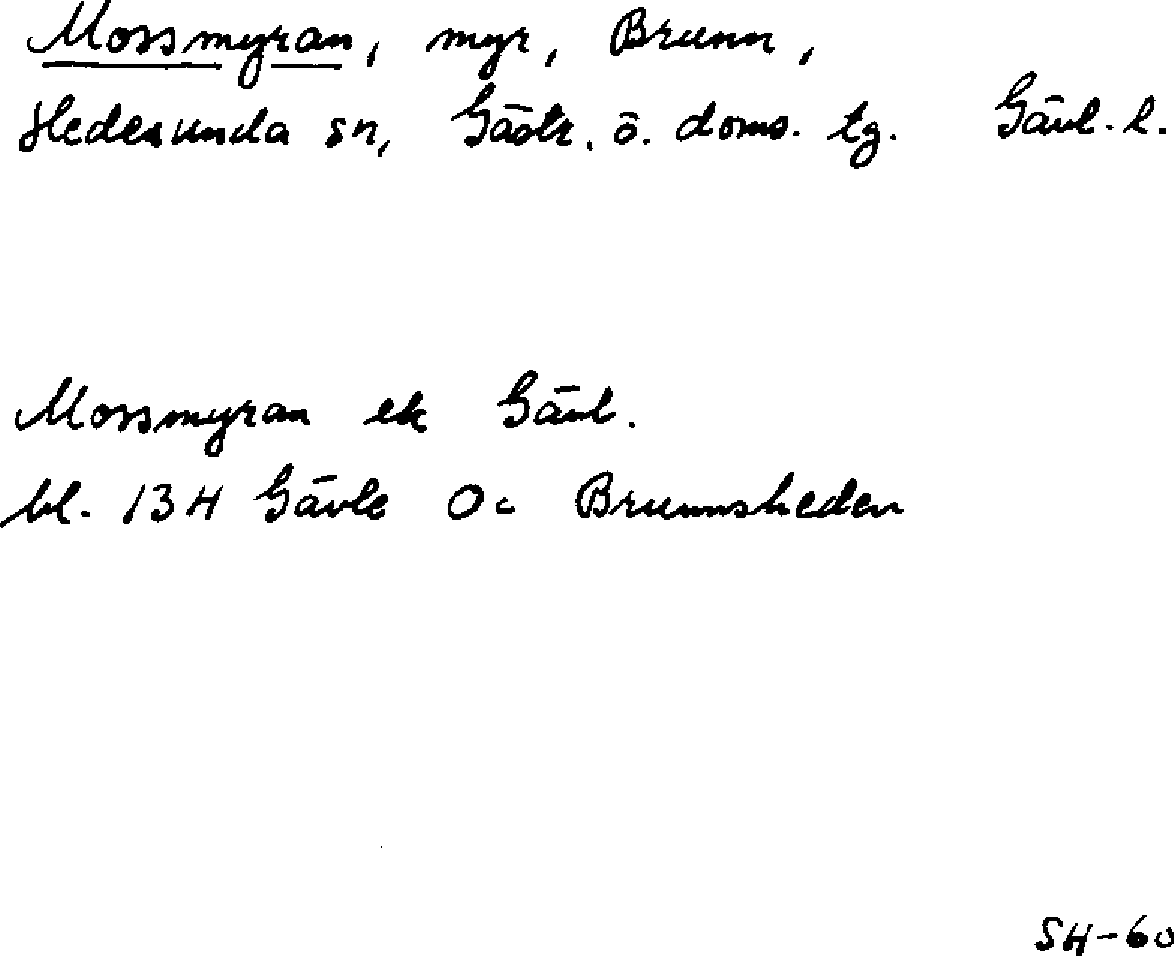 Mossmyran, myr, Brunn,
Hedesunda sn, Gästr. ö. doms. tg. Gävl. l.
Mossmyran ek Gävl.
bl. 13H Gävle 0c Brunnsheden
SH-60